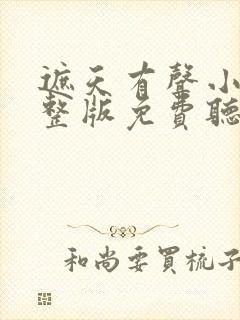 遮天有聲小
整版免費聽
和尚要買梳子